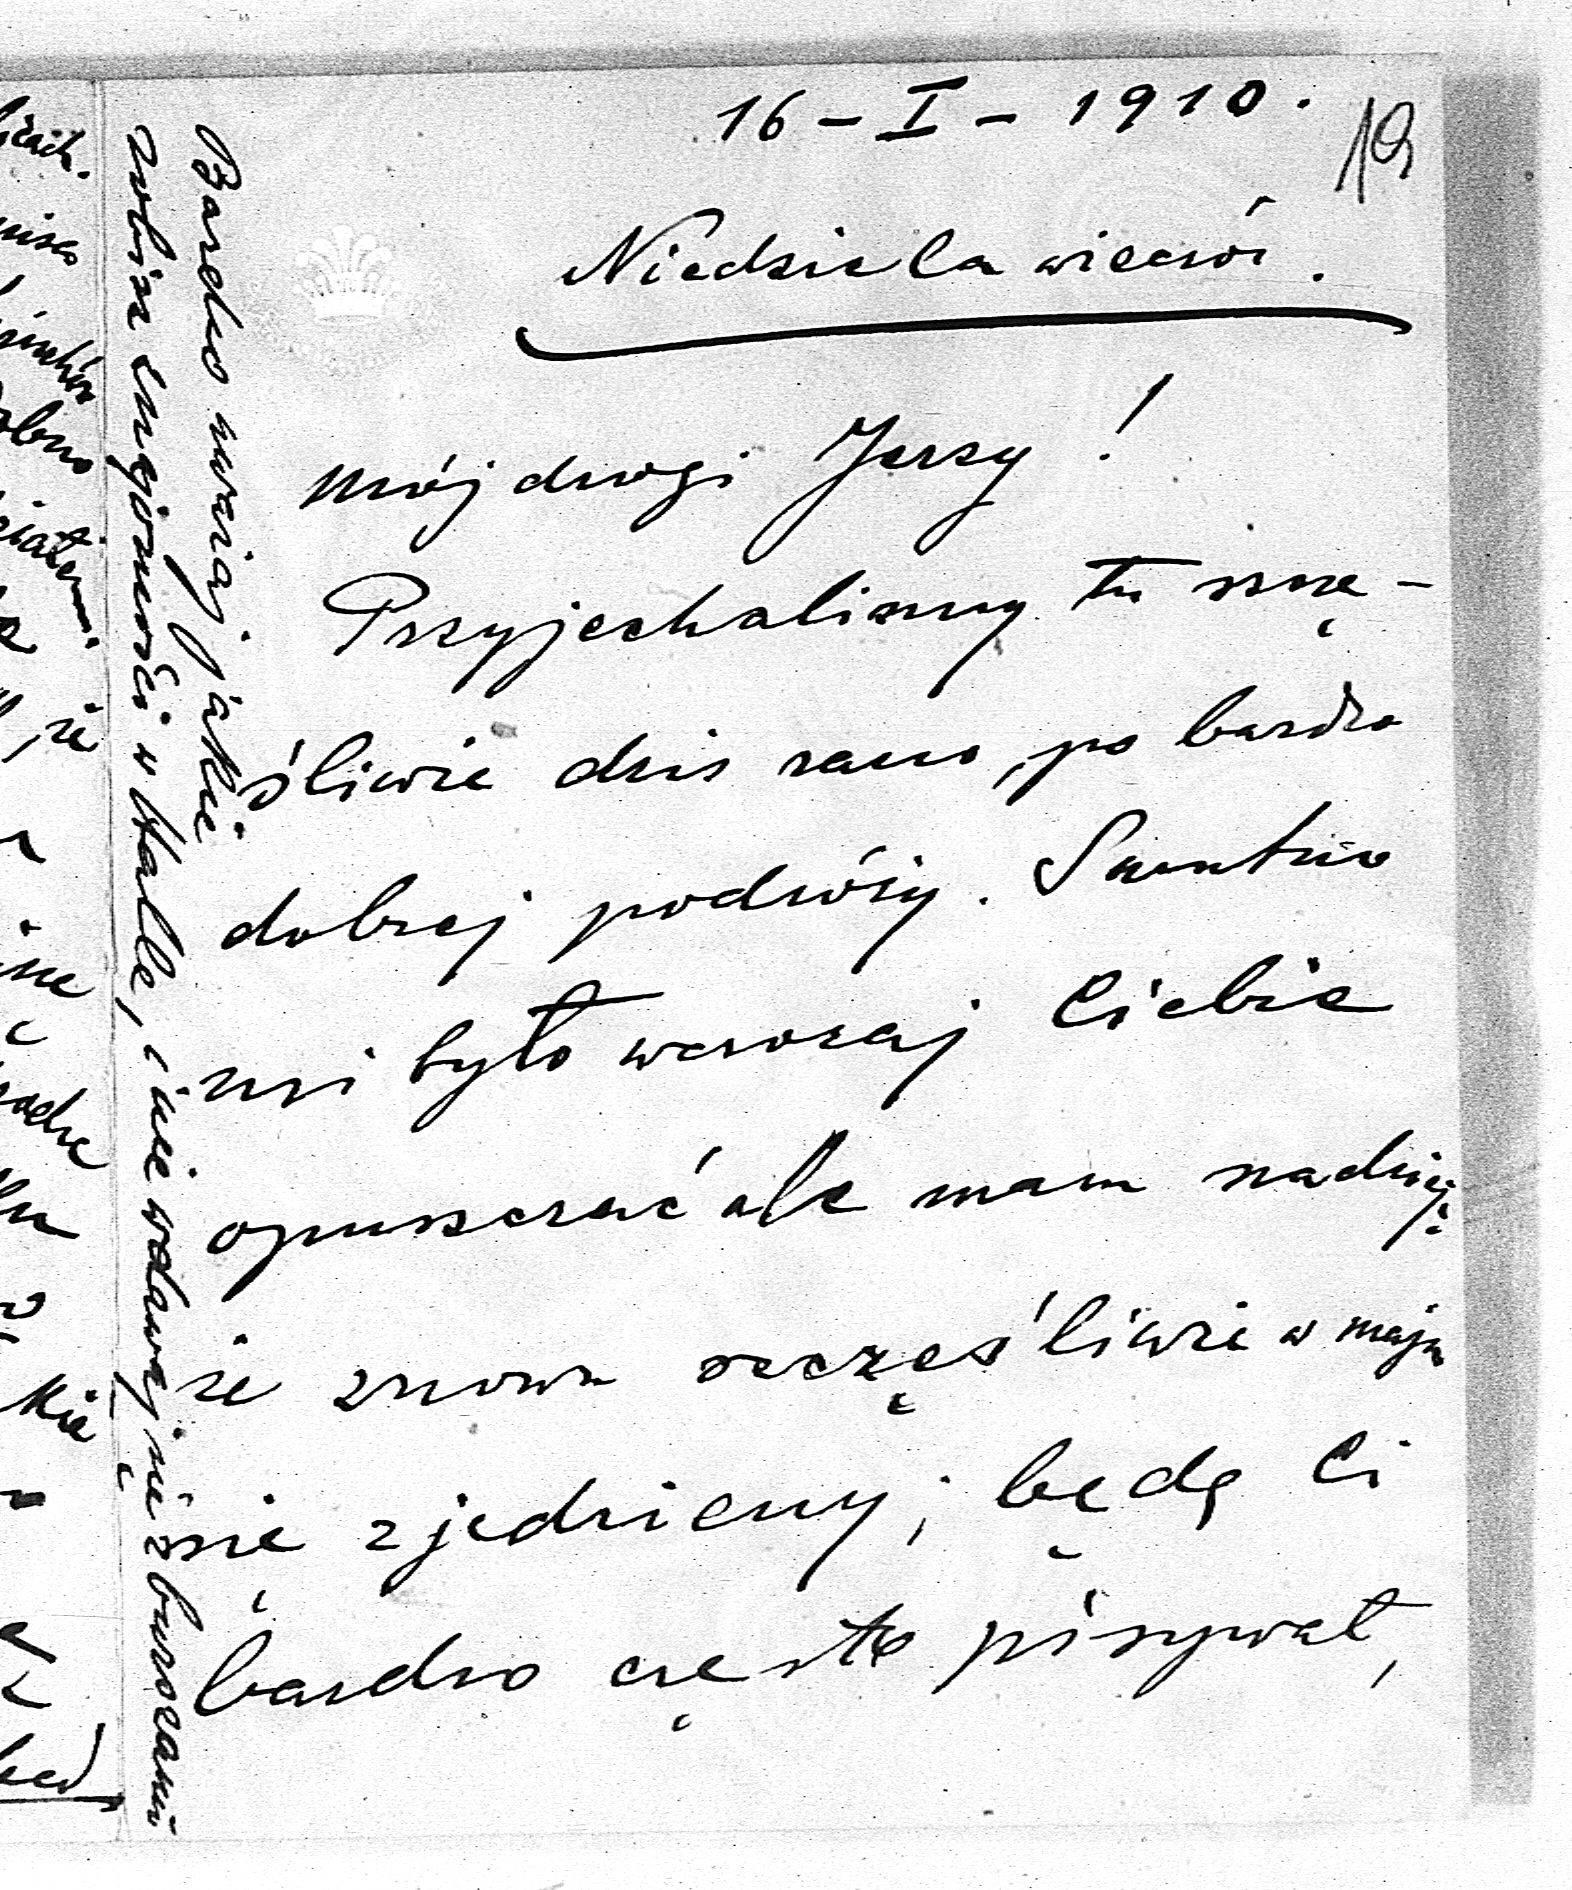 16 – I – 1910.
19
Niedziela wieczór.
Mój drogi Jerzy!
Przyjechaliśmy tu szczę-
śliwie dziś rano, po bardzo
dobrej podróży. Smutno
mi było wczoraj Ciebie
opuszczać ale mam nadzieję
że znowu szczęśliwie w maju
się zjedziemy; będę Ci
bardzo często pisywał,
Bardzo uważaj jakie
robisz znajomości w Halle, i nie wdawaj się z burszami